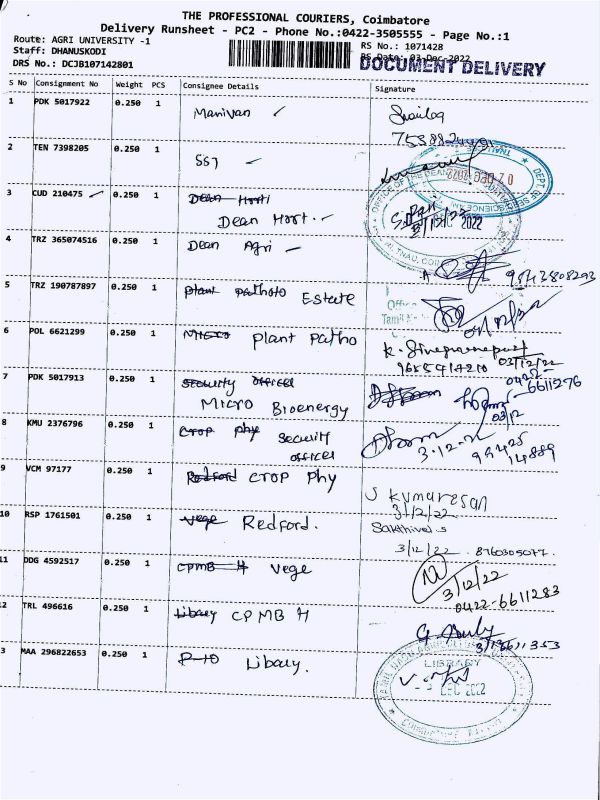 THE PROFESSIONAL COURIERS, Coimbatore
Delivery Runsheet - PC2 - Phone No.:0422-3505555 - Page No.:1
Route: AGRI UNIVERSITY -1
RS No.: 1071428
Staff: DHANUSKODI
RS Date: 03-Dec-2022
DRS No.: DCJB107142801
DOCUMENT DELIVERY
S No Consignment No Weight PCS Consignee Details Signature
1 PDK 5017922 0.250 1 Manivan
2 TEN 7398205 0.250 1 SST
3 CUD 210475 0.250 1 Dean Horti
Dean Hort.
3/12/22
DEC 2022
4 TRZ 365074516 0.250 1 Dean Agri
9843808293
5 TRZ 190787897 0.250 1 plant patholo Estate
6 POL 6621299 0.250 1 Micro plant patho
9655414210 03/12/22
7 PDK 5017913 0.250 1 security officer
Micro Bioenergy
0422-6611276
03/12
8 KMU 2376796 0.250 1 crop phy security
officer
3.12.22 99425
14889
9 VCM 97177 0.250 1 Redford crop phy
S Kumaresan
3/12/22
10 RSP 1761501 0.250 1 vege Redford.
Sakthivel.s
3/12/22. 8760305077.
11 DDG 4592517 0.250 1 CPMB H vege
3/12/22
0422-6611283
2 TRL 496616 0.250 1 Libary CPMB H
3 MAA 296822653 0.250 1 P-10 Libary.
LIBRARY
DEC 2022